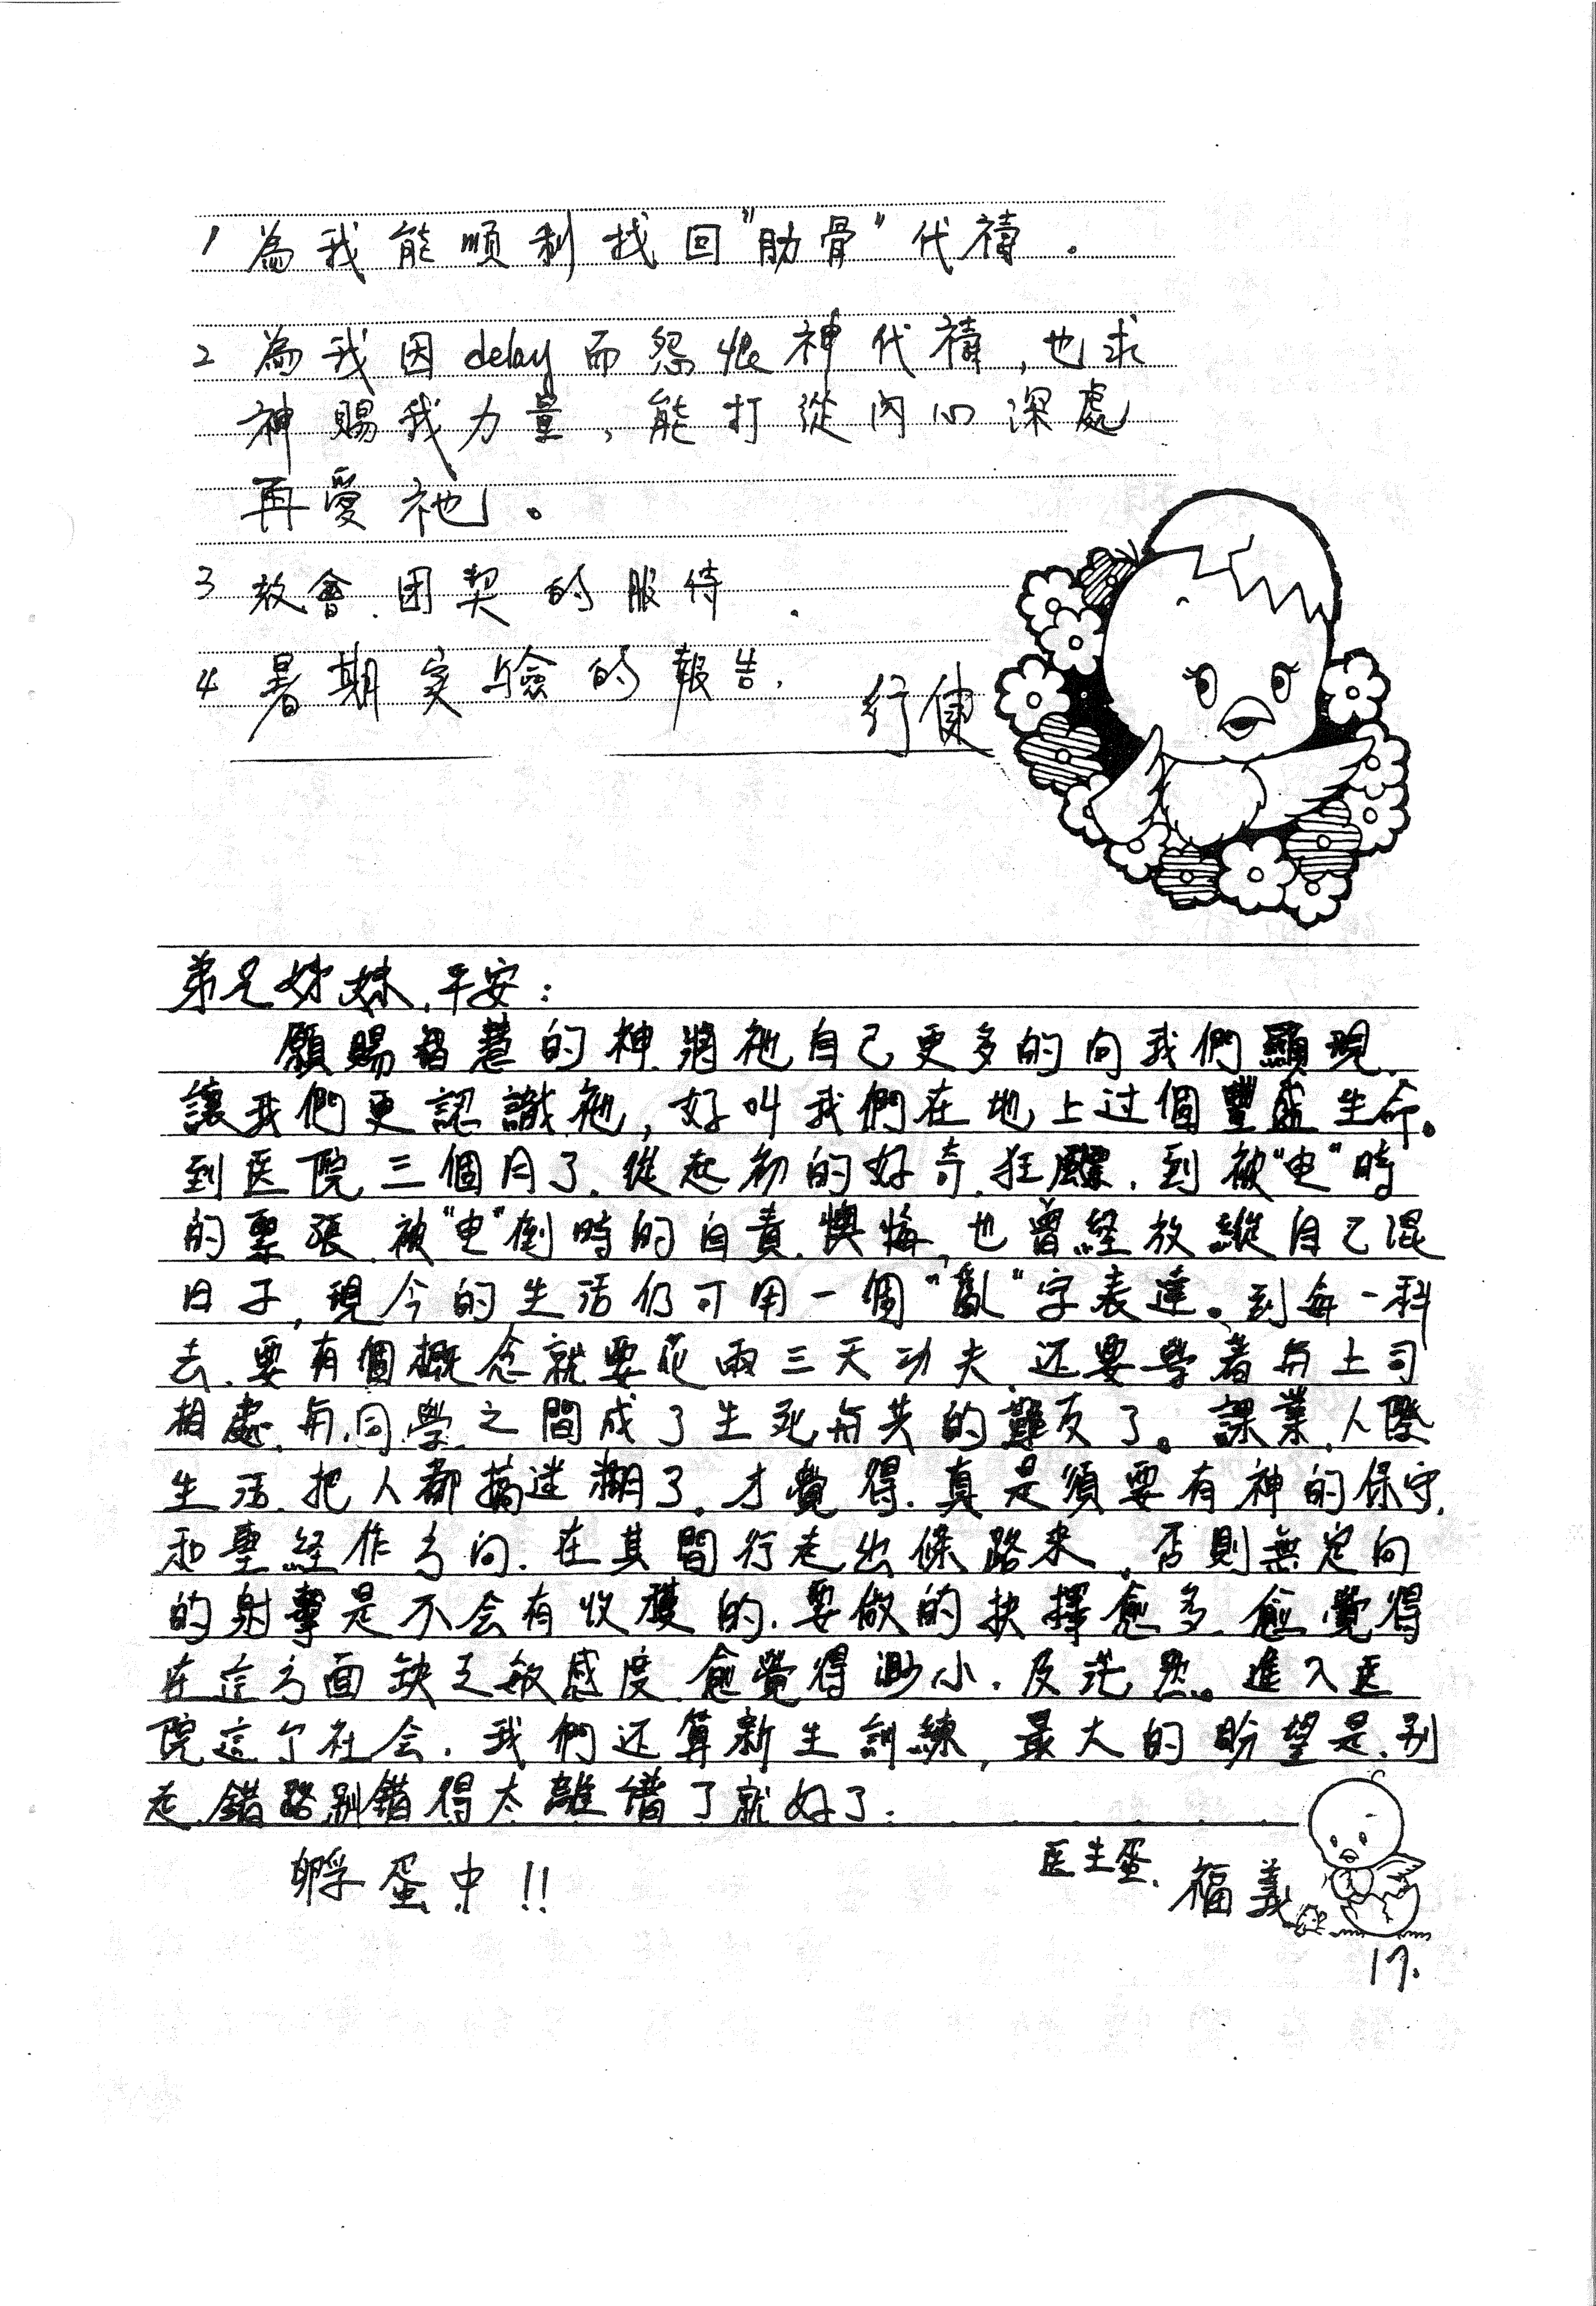 1 為我能順利找回"肋骨"代禱。
2 為我因delay而怨恨神代禱,也求
神賜我力量,能打從內心深處
再愛祂。
3 教會、团契的服侍.
4 暑期实驗的報告.
行健
弟兄姊妹,平安:
願賜智慧的神,將祂自己更多的向我們顯現,
讓我們更認識祂,好叫我們在地上过個豐盛生命。
到医院三個月了,從起初的好奇,狂,到被"电"時
的緊張,被"电"倒時的自責,懊悔,也曾経放縱自己混
日子,現今的生活仍可用一個"亂"字表達。到每一科
去,要有個概念就要花兩三天功夫,还要學着与上司
相處,与同學之間成了生死与共的難友了。課業,人際
生活,把人都搞迷糊了,才覺得,真是須要有神的保守,
和聖経作方向,在其間行走出條路來,否則無定向
的射擊是不会有收穫的,要做的抉擇愈多,愈覺得
在這方面缺乏敏感度,愈覺得渺小,及茫然。進入医
院這个社会,我們还算新生訓練,最大的盼望是,別
走錯路別錯得太離譜了就好了.
孵蛋中!!
医生蛋,福義
17.